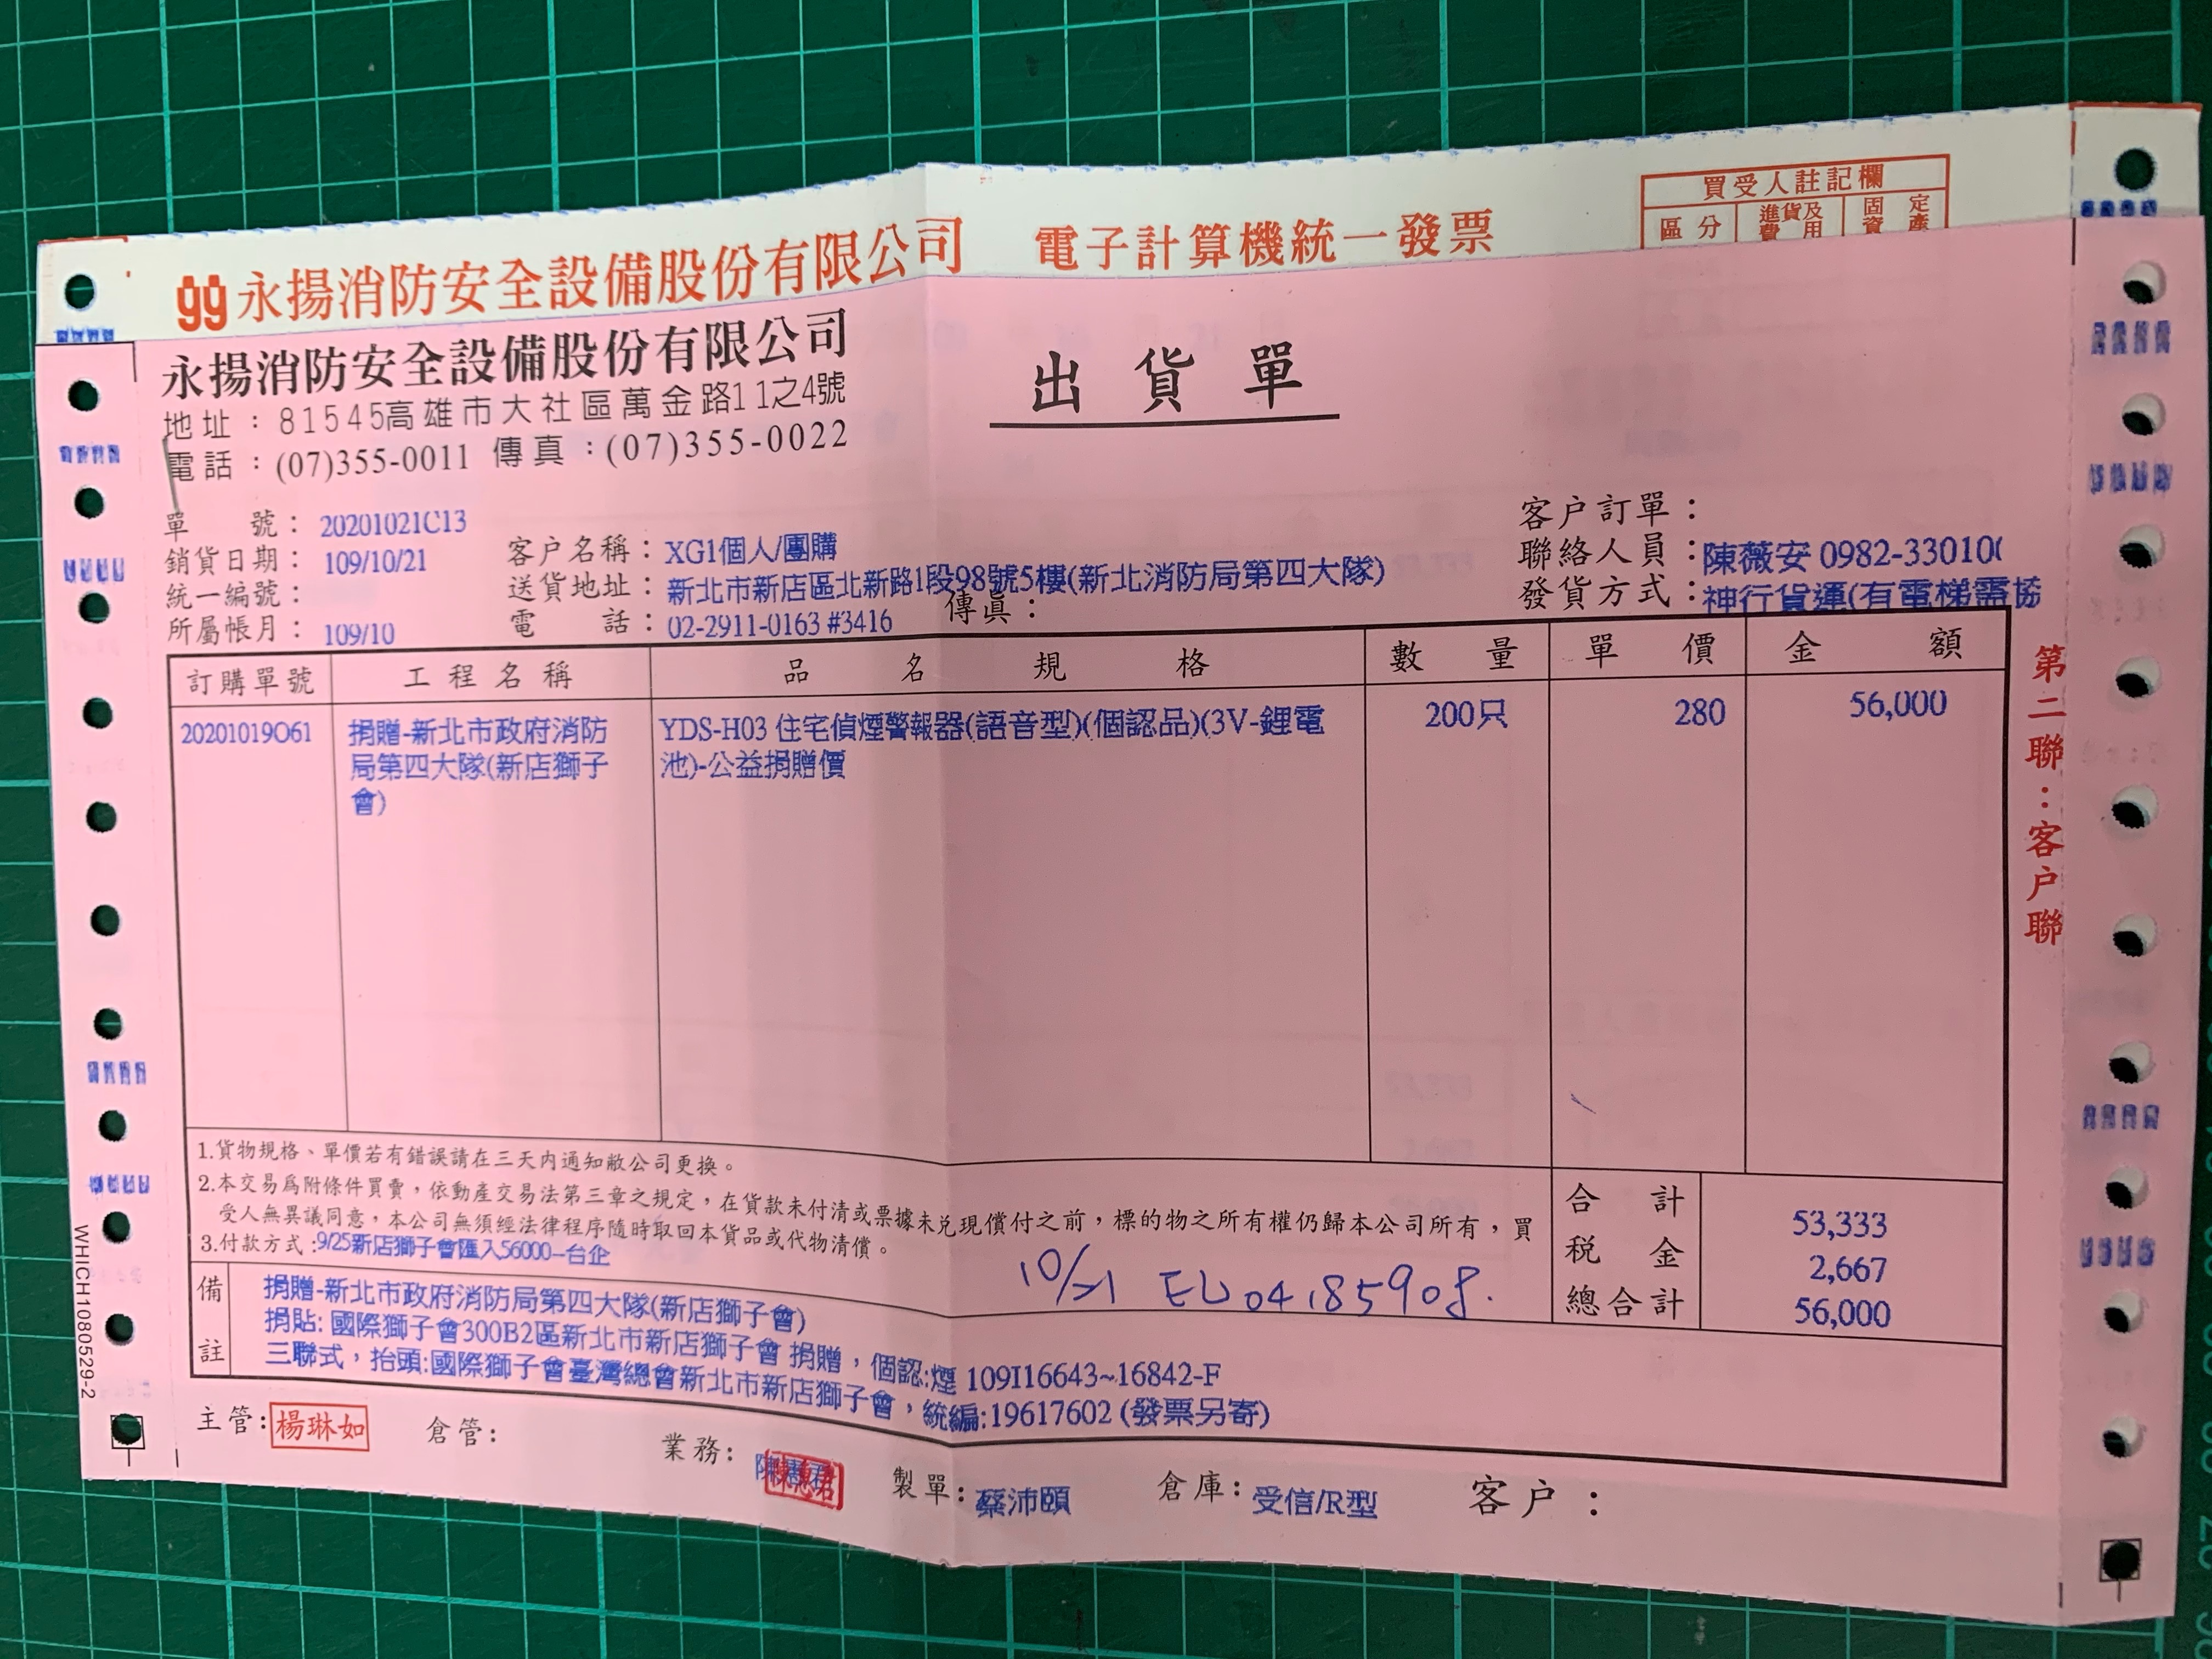 買受人註記欄
區分 進貨及費用 固定資產
永揚消防安全設備股份有限公司 電子計算機統一發票
永揚消防安全設備股份有限公司
出貨單
地址：81545高雄市大社區萬金路11之4號
電話：(07)355-0011 傳真：(07)355-0022
單號：20201021C13
客戶訂單：
銷貨日期：109/10/21 客戶名稱：XG1個人/團購 聯絡人員：陳薇安 0982-33010
統一編號： 送貨地址：新北市新店區北新路1段98號5樓(新北消防局第四大隊) 發貨方式：神行貨運(有電梯需協
所屬帳月：109/10 電話：02-2911-0163 #3416 傳真：
訂購單號 工程名稱 品名規格 數量 單價 金額
20201019O61 捐贈-新北市政府消防 YDS-H03 住宅偵煙警報器(語音型)(個認品)(3V-鋰電 200只 280 56,000
局第四大隊(新店獅子 池)-公益捐贈價
會)
第二聯：客戶聯
1.貨物規格、單價若有錯誤請在三天內通知敝公司更換。
2.本交易為附條件買賣，依動產交易法第三章之規定，在貨款未付清或票據未兌現償付之前，標的物之所有權仍歸本公司所有，買
受人無異議同意，本公司無須經法律程序隨時取回本貨品或代物清償。
3.付款方式:9/25新店獅子會匯入56000-台企
合計 53,333
稅金 2,667
總合計 56,000
10/21 EU04185908.
備註
捐贈-新北市政府消防局第四大隊(新店獅子會)
捐貼: 國際獅子會300B2區新北市新店獅子會 捐贈，個認:煙 109I16643~16842-F
三聯式，抬頭:國際獅子會臺灣總會新北市新店獅子會，統編:19617602 (發票另寄)
主管:楊琳如 倉管: 業務: 製單:蔡沛頤 倉庫:受信/R型 客戶：
WHICH1080529-2